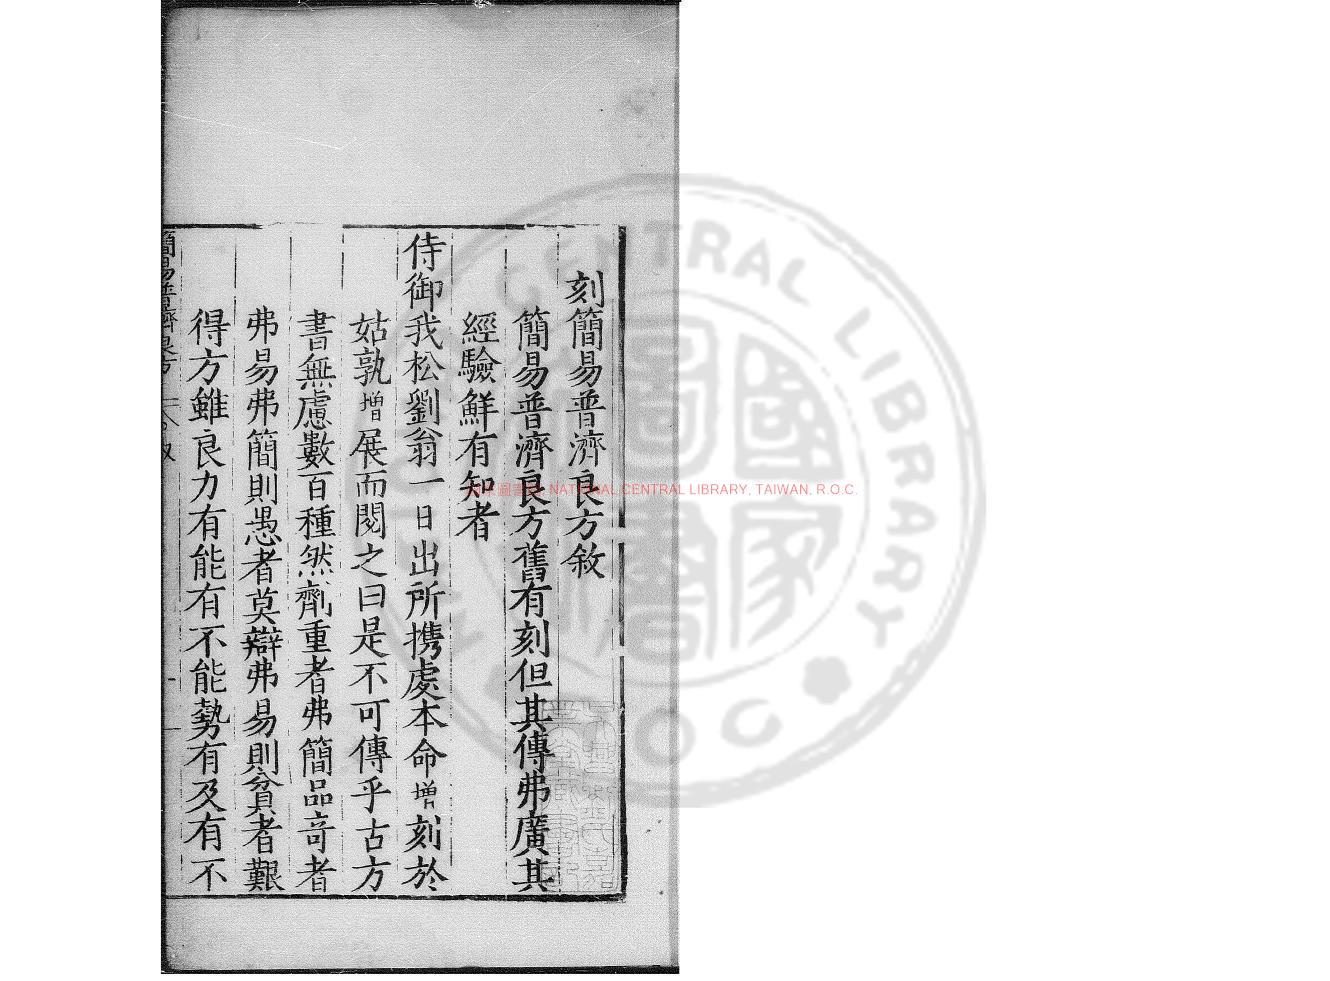 刻簡易普濟良方敘
簡易普濟良方舊有刻但其傳弗廣其
經驗鮮有知者
侍御我松劉翁一日出所攜處本命增刻於
姑孰增展而閱之曰是不可傳乎古方
書無慮數百種然劑重者弗簡品竒者
弗易弗簡則愚者莫辯弗易則貧者艱
得方雖良力有能有不能勢有及有不
簡易普濟良方
NATIONAL CENTRAL LIBRARY, TAIWAN, R.O.C.
CENTRAL LIBRARY